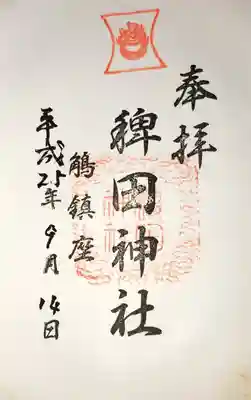 奉拝
稗田神社
鵤鎮座
平成25年9月14日